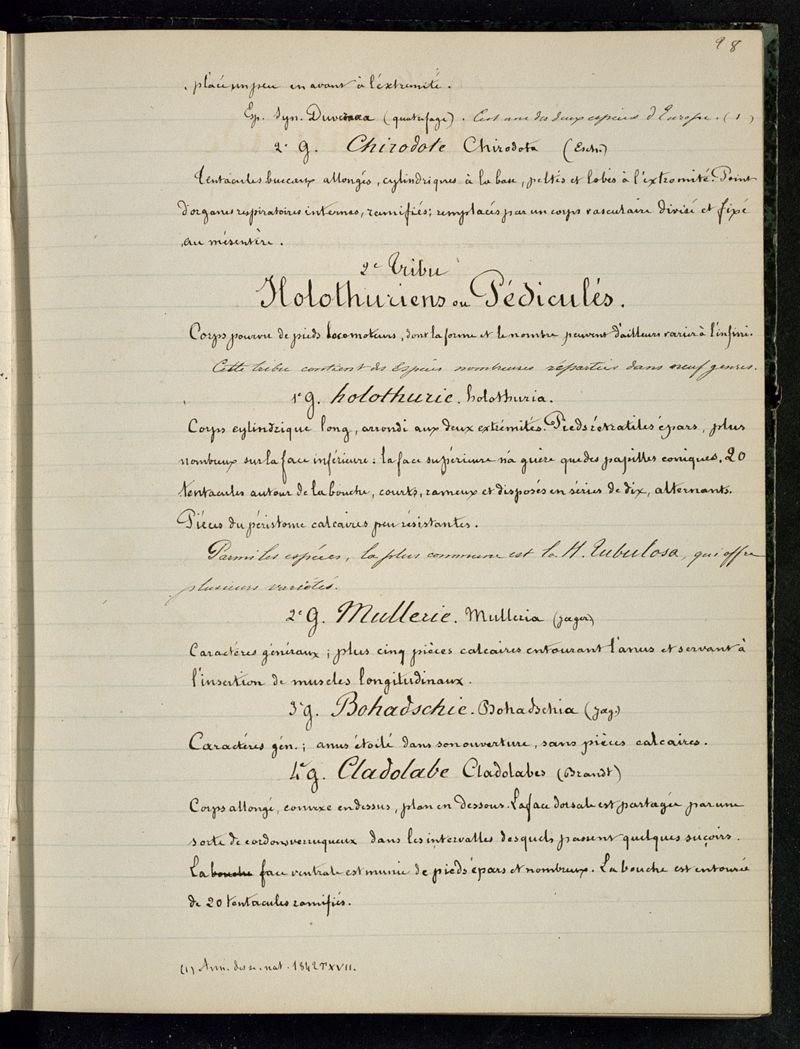 98
placé un peu en avant à l'extrémité.
Esp. Syn. Duvernaea (quatrefage). C'est une des deux espèces d'Europe. (1)
2e G. Chirodote Chirodota (Esch.)
Tentacules buccaux allongés, cylindriques à la base, peltés et lobés à l'extrémité. Point
d'organes respiratoires internes, ramifiés; remplacés par un corps vasculaire divisé et fixé
au mésentère.
2e Tribu
Holothuriens ou Pédiculés.
Corps pourvu de pieds locomoteurs, dont la forme et le nombre peuvent d'ailleurs varier à l'infini.
Cette tribu contient des espèces nombreuses réparties dans neuf genres.
1e g. holothurie. holothuria.
Corps cylindrique long, arrondi aux deux extrémités. Pieds rétratiles épars, plus
nombreux sur la face inférieure : la face supérieure n'a guère que des papilles coniques. 20
tentacules autour de la bouche, courts, rameux et disposés en séries de dix, alternants.
Pièces du péristome calcaires peu résistantes.
Parmi les espèces, la plus commune est la H. Tubulosa, qui offre
plusieurs variétés.
2e g. Mullerie. Mulleria (Jaeger)
Caractères généraux ; plus cinq pièces calcaires entourant l'anus et servant à
l'insertion de muscles longitudinaux.
3e g. Bohadschie. Bohadschia (Jag.)
Caractères gén. ; anus étoilé dans son ouverture, sans pièces calcaires.
4e g. Cladolabe Cladolabes (Brandt)
Corps allongé, convexe en dessus, plan en dessous. La face dorsale est partagée par une
sorte de cordon verruqueux dans les intervalles desquels passent quelques suçoirs.
La bouche face ventrale est munie de pieds épars et nombreux. La bouche est entourée
de 20 tentacules ramifiés.
(1) Ann. des sc. nat. 1842 T XVII.